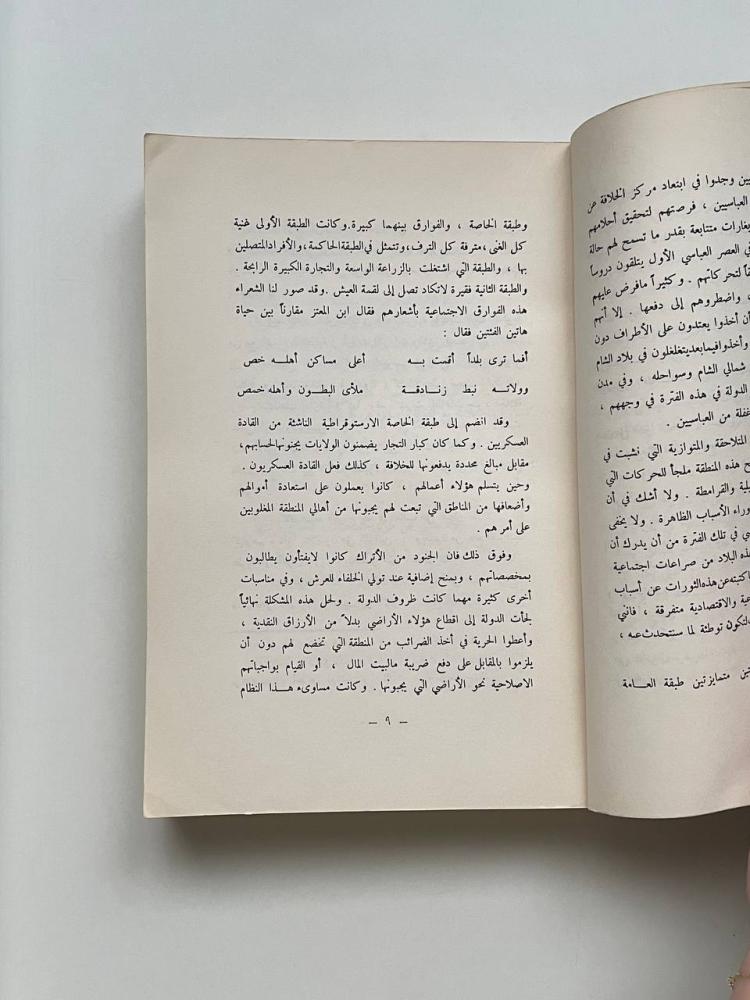 يين وجدوا في ابتعاد مركز الخلافة عن
العباسيين ، فرصتهم لتحقيق أحلامهم
بغارات متتابعة بقدر ما تسمح لهم حالة
في العصر العباسي الأول يتلقون دروساً
لتحركاتهم . وكثيراً مافرض عليهم
، واضطروهم إلى دفعها . إلا أنهم
أن أخذوا يعتدون على الأطراف دون
وأخذوافيمابعديتغلغلون في بلاد الشام
شمالي الشام وسواحله ، وفي مدن
الدولة في هذه الفترة في وجههم ،
غفلة من العباسيين .
المتلاحقة والمتوازية التي نشبت في
هذه المنطقة ملجأ للحركات التي
والقرامطة . ولا أشك في أن
وراء الأسباب الظاهرة . ولا يخفى
في تلك الفترة من أن يدرك أن
البلاد من صراعات اجتماعية
عن هذه الثورات عن أسباب
والاقتصادية متفرقة ، فانني
لتكون توطئة لما سنتحدث عنه ،
متمايزتين طبقة العـامة
وطبقة الخاصة ، والفوارق بينهما كبيرة.وكانت الطبقة الأولى غنية
كل الغنى،مترفة كل الترف،وتتمثل في الطبقةالحاكمة،والأفرادالمتصلين
بها ، والطبقة التي اشتغلت بالزراعة الواسعة والتجارة الكبيرة الرابحة .
والطبقة الثانية فقيرة لاتكاد تصل إلى لقمة العيش .وقد صور لنا الشعراء
هذه الفوارق الاجتماعية بأشعارهم فقال ابن المعتز مقارناً بين حياة
هاتين الفئتين فقال :
أفما ترى بلداً أقمت بـه أعلى مساكن أهلـه خص
وولاتـه نبط زنـادقـة ملأى البطـون وأهله خمص
وقد انضم إلى طبقة الخاصة الارستوقراطية الناشئة من القادة
العسكريين . وكما كان كبار التجار يضمنون الولايات يجبونهالحسابهم،
مقابل مبالغ محددة يدفعونها للخلافة ، كذلك فعل القادة العسكريون .
وحين يتسلم هؤلاء أعمالهم ، كانوا يعملون على استعادة أموالهم
وأضعافها من المناطق التي تبعت لهم يجبونها من أهالي المنطقة المغلوبين
على أمرهم .
وفوق ذلك فان الجنود من الأتراك كانوا لايفتأون يطالبون
بمخصصاتهم ، وبمنح إضافية عند تولي الخلفاء للعرش ، وفي مناسبات
أخرى كثيرة مهما كانت ظروف الدولة . ولحل هذه المشكلة نهائياً
لجأت الدولة إلى اقطاع هؤلاء الأراضي بدلاً من الأرزاق النقدية ،
وأعطوا الحرية في أخذ الضرائب من المنطقة التي تخضع لهم دون أن
يلزموا بالمقابل على دفع ضريبة مالبيت المال ، أو القيام بواجباتهم
الاصلاحية نحو الأراضي التي يجبونها . وكانت مساوىء هـذا النظام
— ٩ —